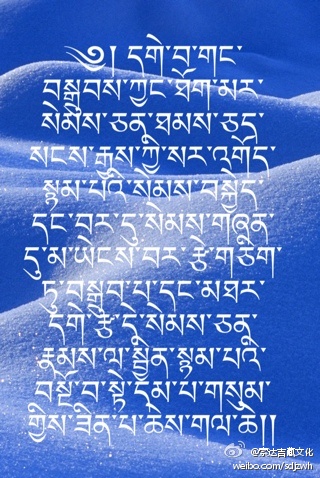 ༄། དགེ་བ་གང་
བསྒྲུབས་ཀྱང་ཐོག་མར་
སེམས་ཅན་ཐམས་ཅད་
སངས་རྒྱས་ཀྱི་སར་འགོད་
སྙམ་པའི་སེམས་བསྐྱེད་
དང་བར་དུ་སེམས་གཞན་
དུ་མ་ཡེངས་བར་རྩེ་གཅིག་
ཏུ་བསྒྲུབ་པ་དང་མཐར་
དགེ་རྩ་དེ་སེམས་ཅན་
རྣམས་ལ་སྨིན་སྙམ་པའི་
བསྔོ་བ་སྟེ་དམ་པ་གསུམ་
གྱིས་ཟིན་པ་ཆེས་གལ་ཆེ།།
@宗达吉藏文化
weibo.com/sdjzwh